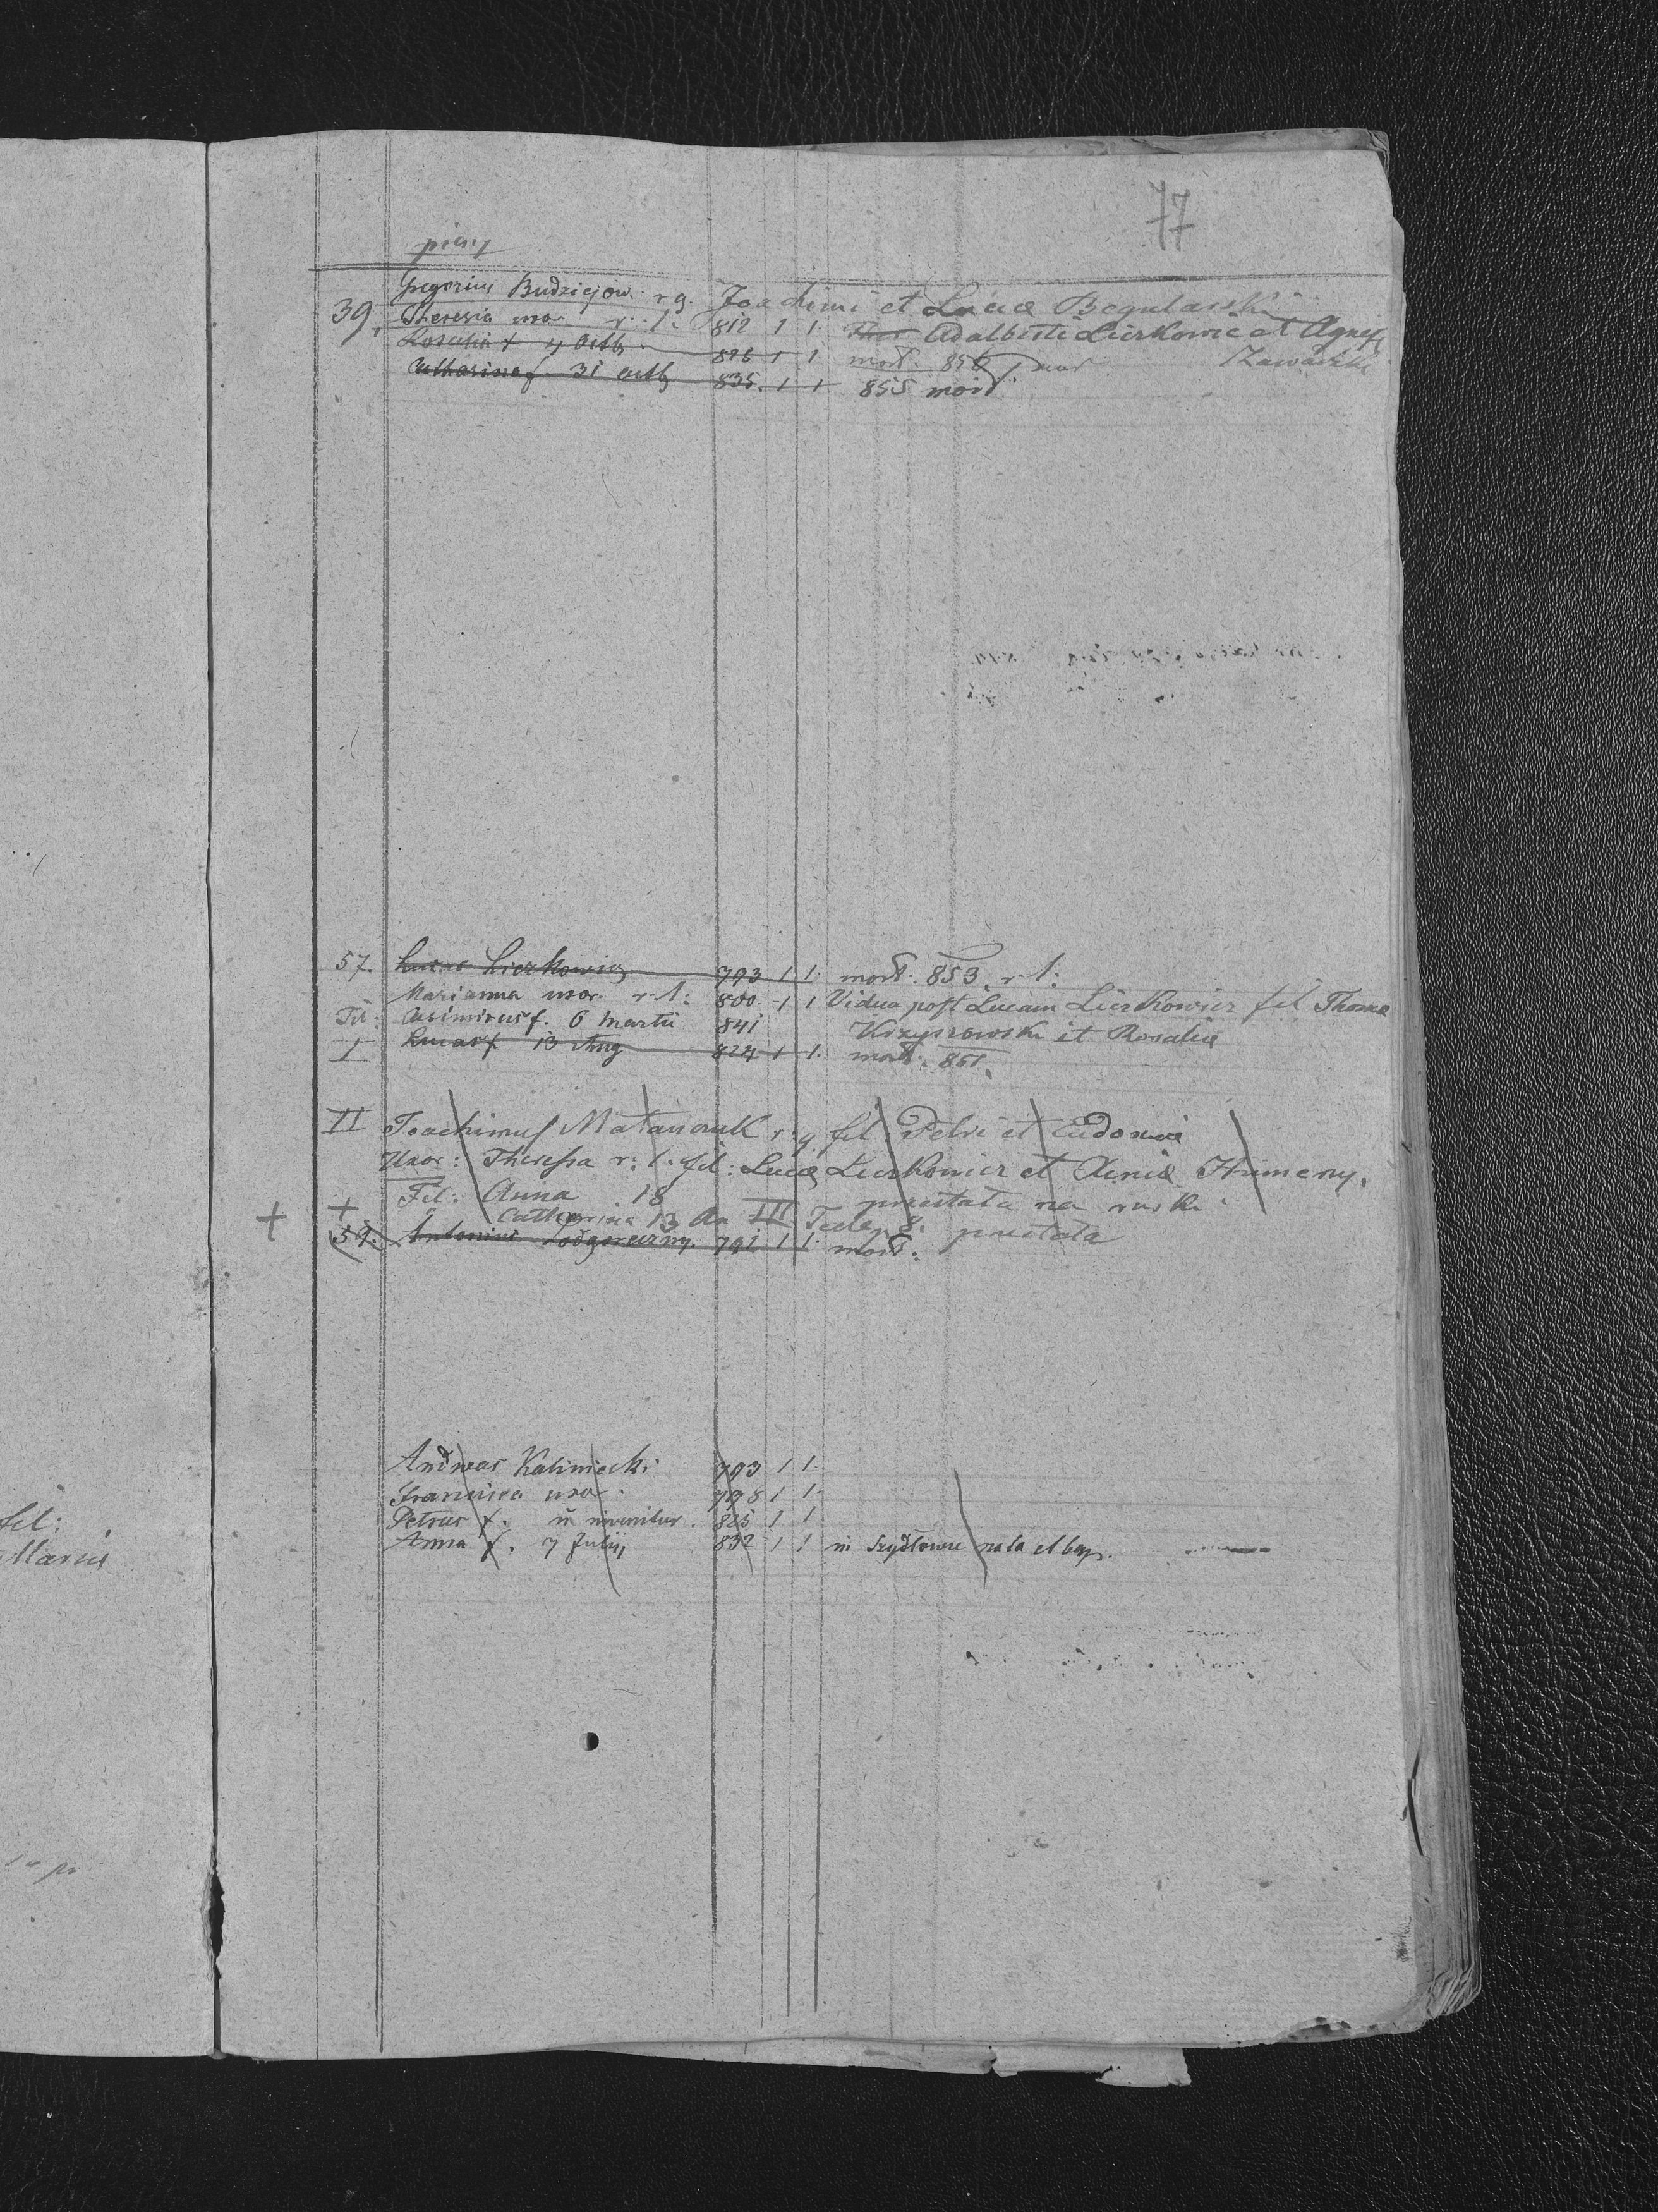 77
39. Gregorius Budziejow. r g. Joachimi et Lucia Begularski
Theresia uxor r. l. 812 1 1. Adalberti Lierkowic et Agnes
Rosalia f 4 Octb 826 1 1. mort. 856 Zawadzki
Catharina f 31 Octb 835. 1 1 855 mort.
57. Lucas Lierkowicz 793 1 1. mort. 853. r l:
Marianna uxor. r. l: 800. 1 1 Vidua post Lucam Lierkowicz fil Thoma
Fil: Casimirus f. 6 Martii 841 Krzyszowski et Rosalia
I Lucas f 13 Aug 824 1 1. mort. 861.
II Joachimus Matanouk r: g fil. Petri et Eudoxia
Uxor: Theressa r: l. fil: Luca Lierkowicz et Xenia Humeny.
+ Fil: Anna 18
Catharina 13 III Tecla 8.
+ 59. Antonius Podgoreczny. 791 1 1. mort:
Andreas Kaliniecki 793 1 1.
Francisca uxor. 798 1 1.
Petrus f. n invenitur. 825 1 1
Anna f. 7 Julij 832 1 1 in Szydlowce nata et bap.
fil:
Maria